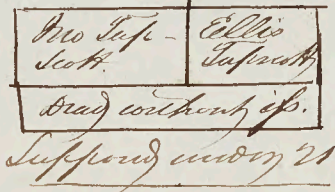 Jno Tap-
scott.
Ellis
Tapscott
Dead without iss.
Suppond under 21